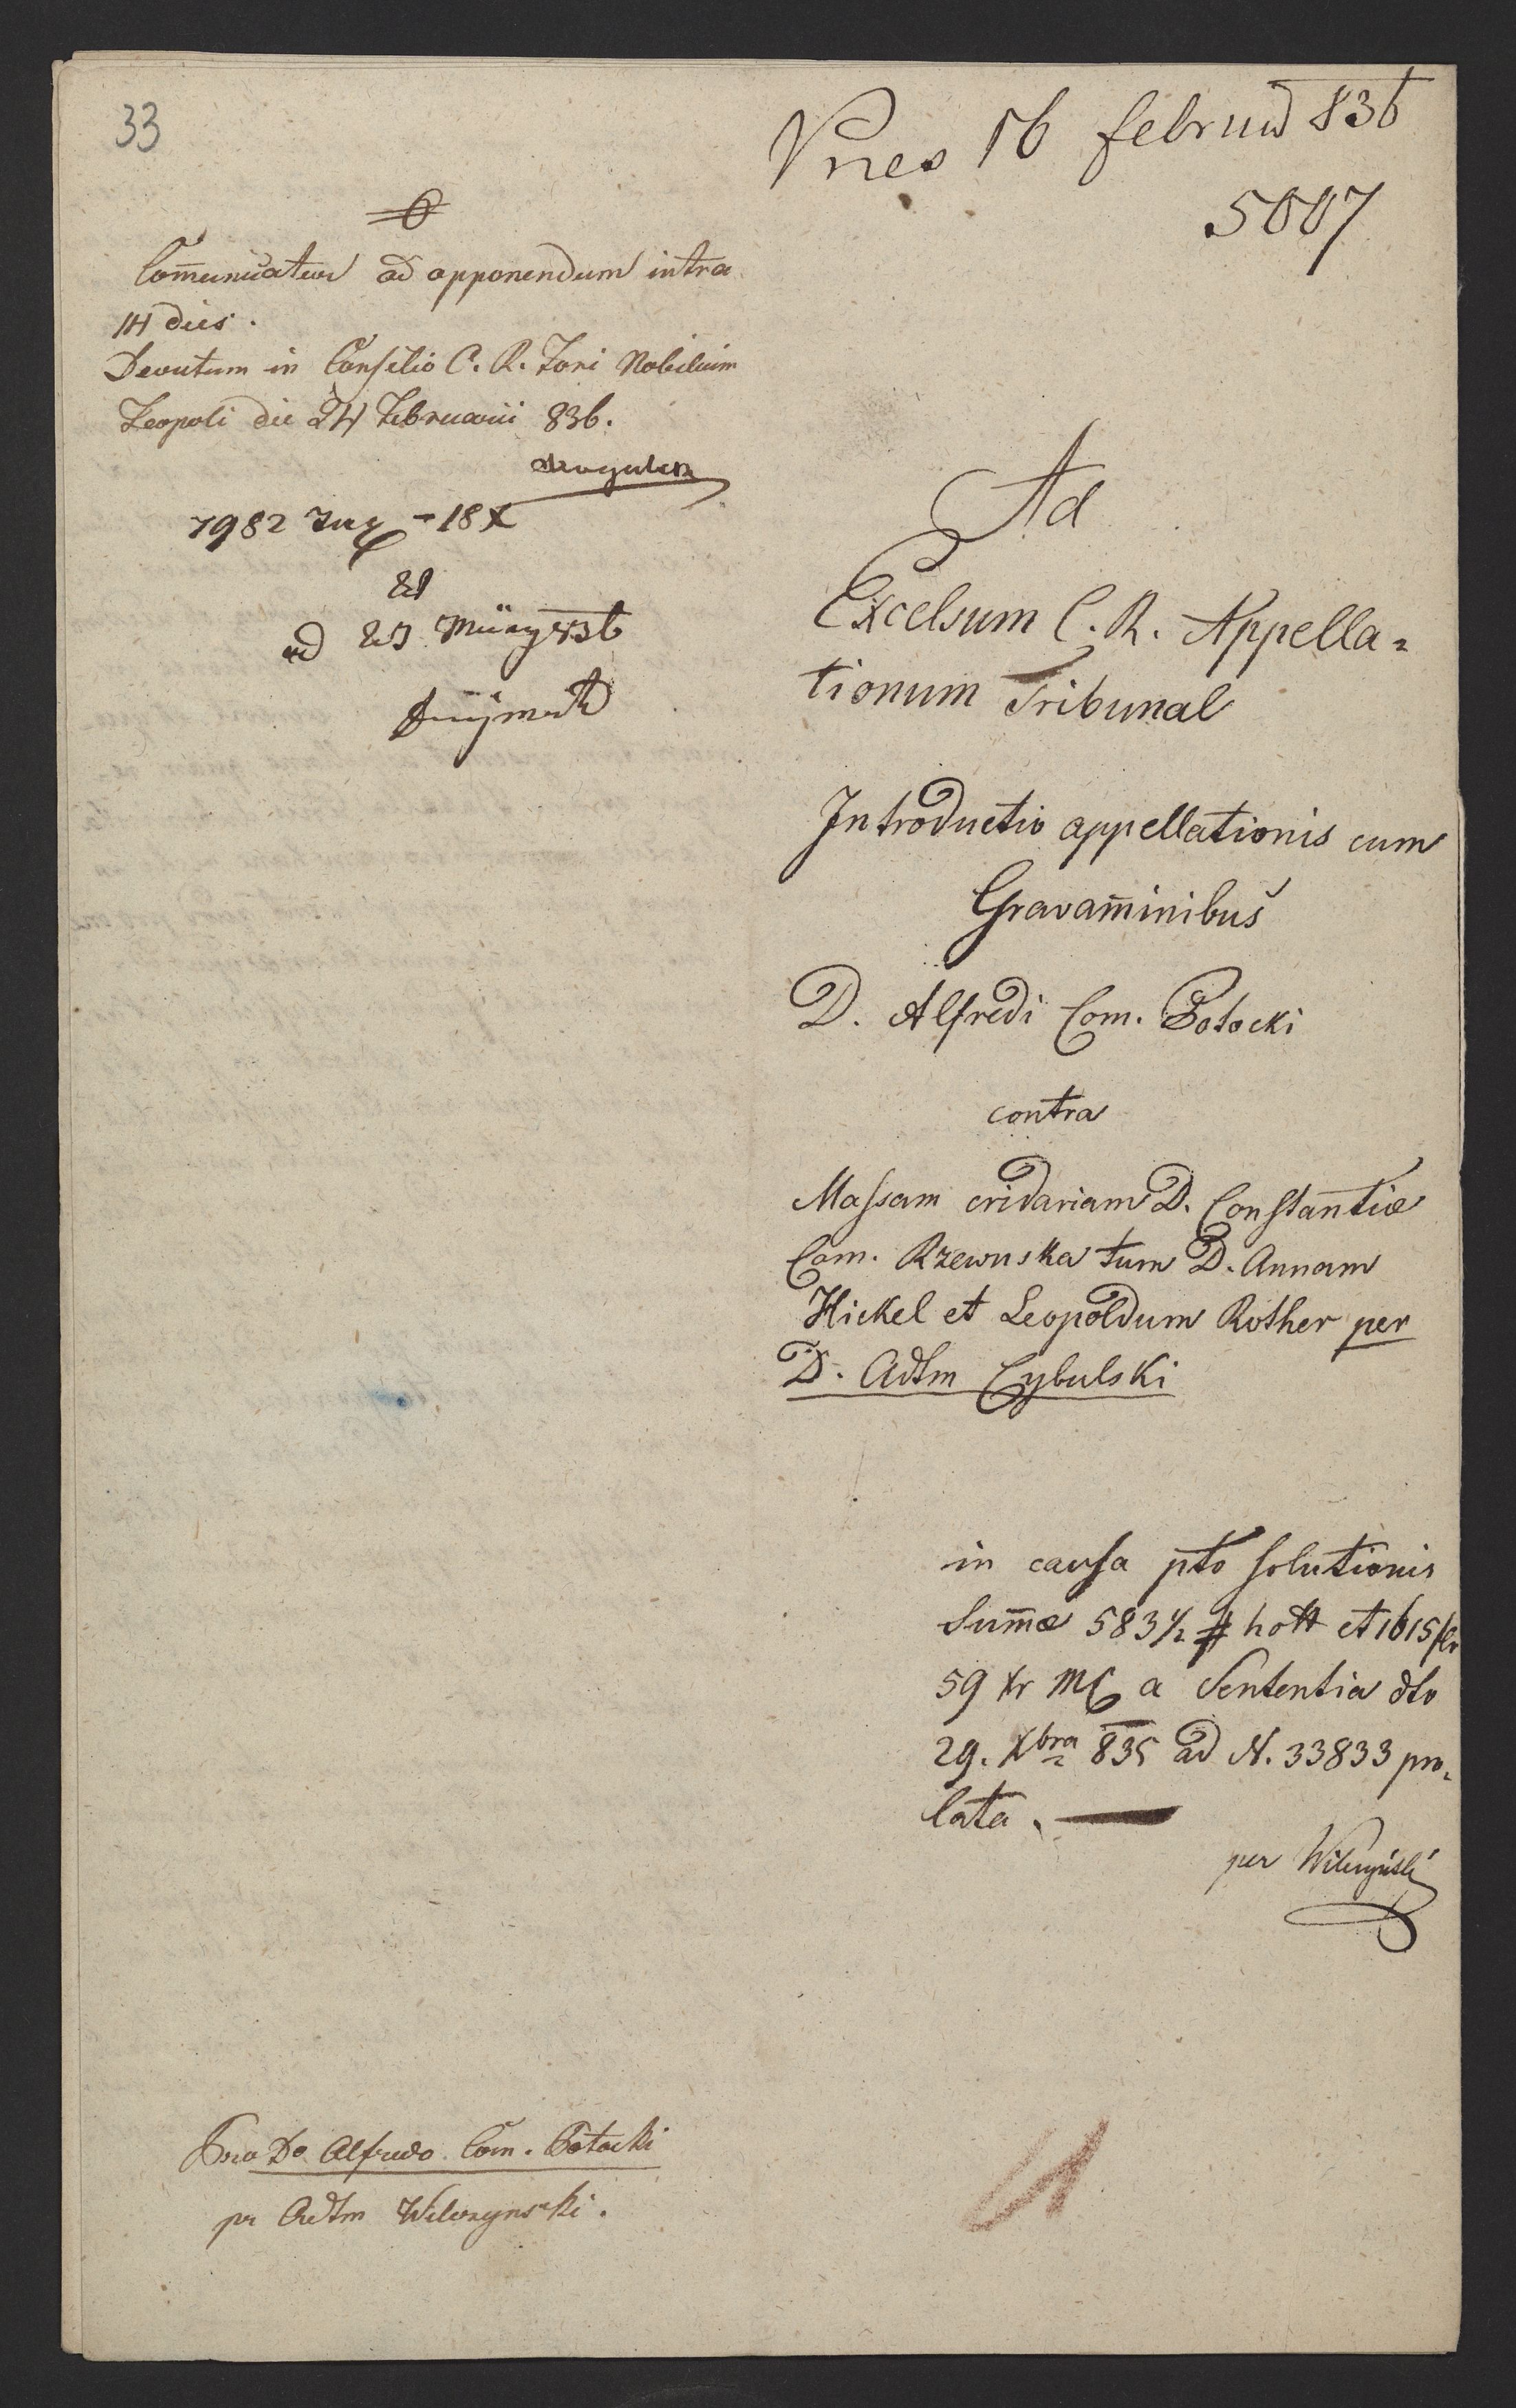 33
Pnes 16 februar 836
5007
Comunicatur ad opponendum intra
14 dies.
Decretum in Consilio C. R. Fori Nobilium
Leopoli die 24 Februarii 836.
7982 - 18 X
ad 836
Ad
Excelsum C. R. Appella=
tionum Tribunal
Introductio appellationis cum
Gravaminibus
D. Alfredi Com. Potocki
contra
Massam cridariam D. Constantiæ
Com. Rzewuska tum D. Annam
Hickel et Leopoldum Rother per
D. Adtm Cybulski
in causa pto solutionis
Summæ 583 1/2 # holl et 1615 flr
59 Xr MC a Sententia dto
29. Xbra 835 ad N. 33833 pro=
lata.
per Wilczyński
Pro Do Alfredo Com. Potocki
pr Adtm Wilczynski.